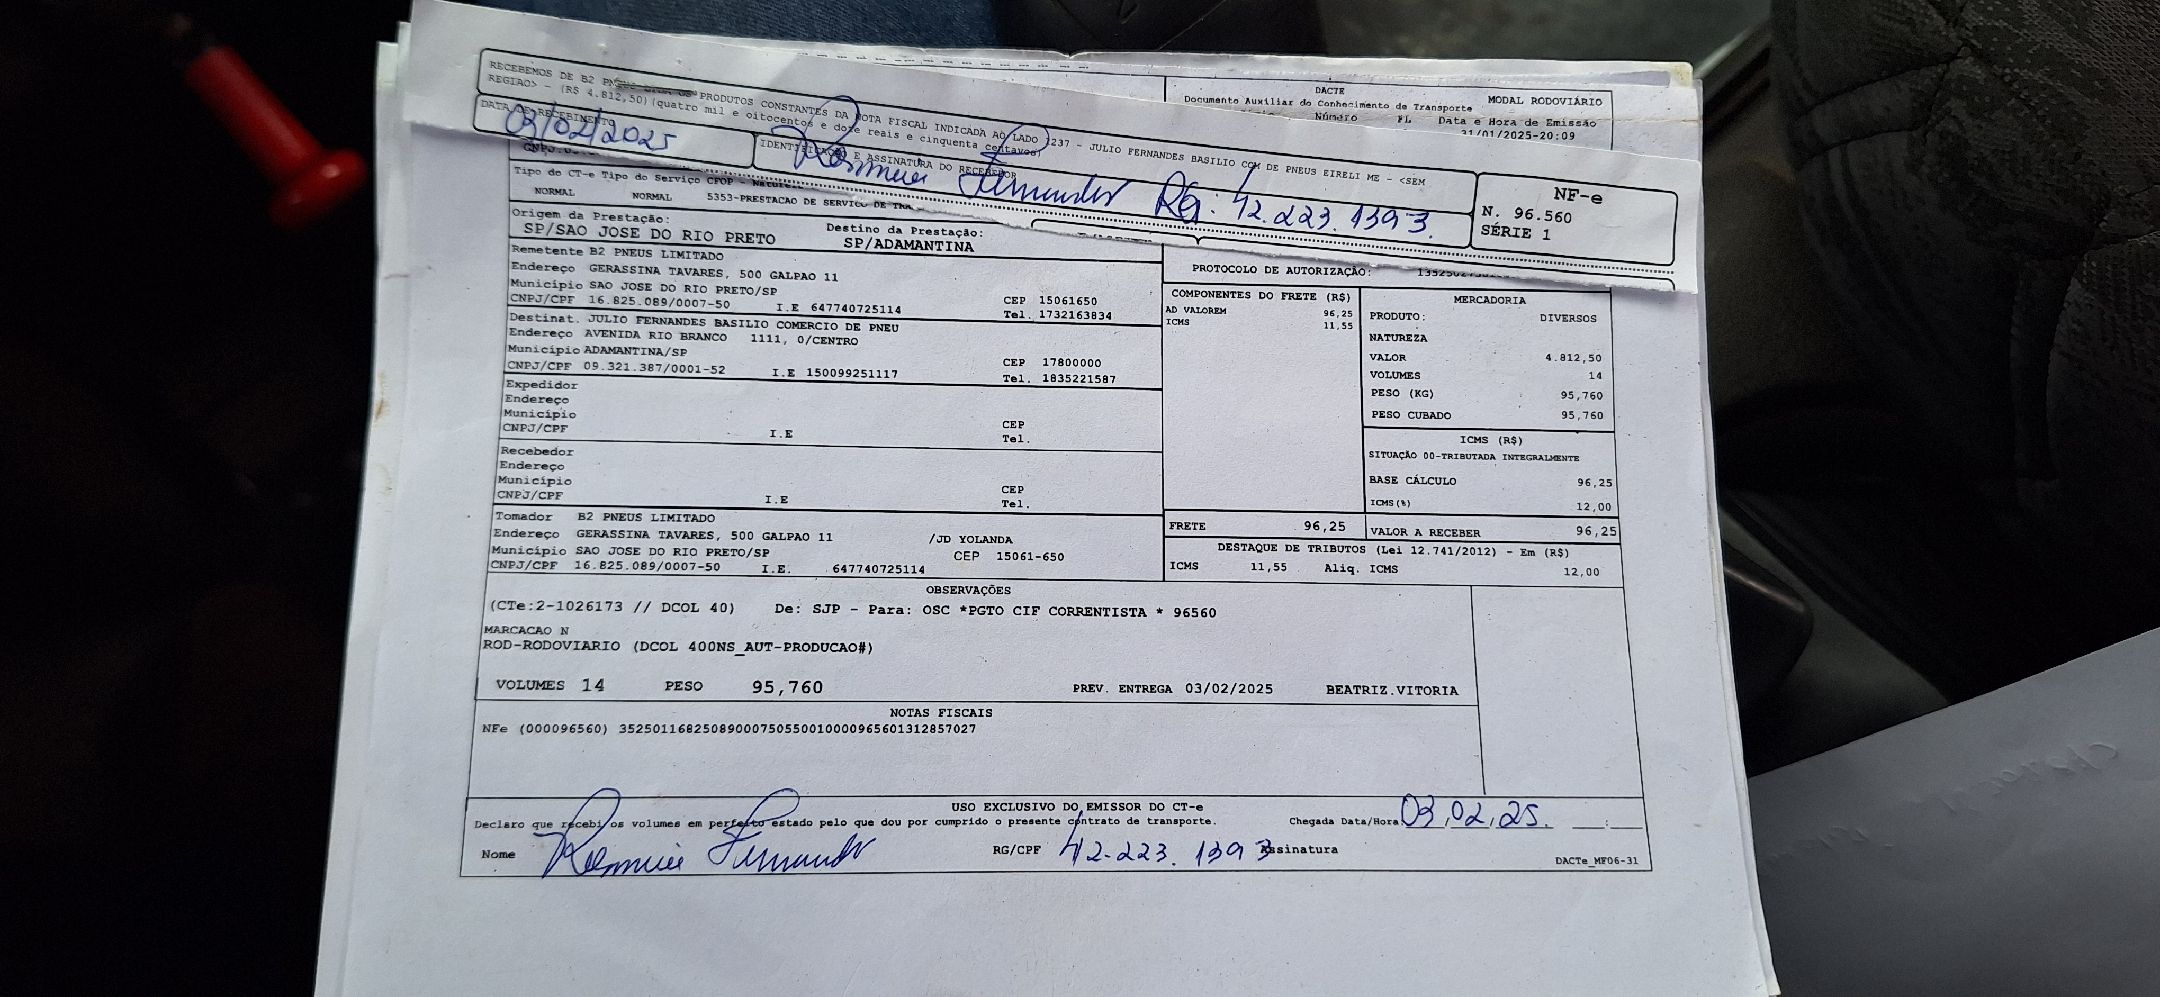 RECEBEMOS DE B2 PNEUS OS PRODUTOS CONSTANTES DA NOTA FISCAL INDICADA AO LADO 1237 - JULIO FERNANDES BASILIO COM DE PNEUS EIRELI ME - <SEM
REGIAO> - (R$ 4.812,50)(quatro mil e oitocentos e doze reais e cinquenta centavos)
DATA DE RECEBIMENTO
03/02/2025
IDENTIFICAÇÃO E ASSINATURA DO RECEBEDOR
Fernandes RG: 42.223.1393.
NF-e
N. 96.560
SÉRIE 1
DACTE
Documento Auxiliar do Conhecimento de Transporte
MODAL RODOVIÁRIO
Número FL Data e Hora de Emissão
31/01/2025-20:09
Tipo do CT-e Tipo do Serviço CFOP -
NORMAL NORMAL 5353-PRESTACAO DE SERVICO DE
Origem da Prestação:
SP/SAO JOSE DO RIO PRETO
Destino da Prestação:
SP/ADAMANTINA
PROTOCOLO DE AUTORIZAÇÃO:
Remetente B2 PNEUS LIMITADO
Endereço GERASSINA TAVARES, 500 GALPAO 11
Município SAO JOSE DO RIO PRETO/SP CEP 15061650
CNPJ/CPF 16.825.089/0007-50 I.E 647740725114 Tel. 1732163834
Destinat. JULIO FERNANDES BASILIO COMERCIO DE PNEU
Endereço AVENIDA RIO BRANCO 1111, 0/CENTRO
Município ADAMANTINA/SP CEP 17800000
CNPJ/CPF 09.321.387/0001-52 I.E 150099251117 Tel. 1835221587
Expedidor
Endereço
Município CEP
CNPJ/CPF I.E Tel.
Recebedor
Endereço
Município CEP
CNPJ/CPF I.E Tel.
Tomador B2 PNEUS LIMITADO
Endereço GERASSINA TAVARES, 500 GALPAO 11 /JD YOLANDA
Município SAO JOSE DO RIO PRETO/SP CEP 15061-650
CNPJ/CPF 16.825.089/0007-50 I.E. 647740725114
COMPONENTES DO FRETE (R$)
AD VALOREM 96,25
ICMS 11,55
MERCADORIA
PRODUTO: DIVERSOS
NATUREZA
VALOR 4.812,50
VOLUMES 14
PESO (KG) 95,760
PESO CUBADO 95,760
ICMS (R$)
SITUAÇÃO 00-TRIBUTADA INTEGRALMENTE
BASE CÁLCULO 96,25
ICMS(%) 12,00
FRETE 96,25 VALOR A RECEBER 96,25
DESTAQUE DE TRIBUTOS (Lei 12.741/2012) - Em (R$)
ICMS 11,55 Aliq. ICMS 12,00
OBSERVAÇÕES
(CTe:2-1026173 // DCOL 40) De: SJP - Para: OSC *PGTO CIF CORRENTISTA * 96560
MARCACAO N
ROD-RODOVIARIO (DCOL 400NS_AUT-PRODUCAO#)
VOLUMES 14 PESO 95,760 PREV. ENTREGA 03/02/2025 BEATRIZ.VITORIA
NOTAS FISCAIS
NFe (000096560) 35250116825089000750550010000965601312857027
USO EXCLUSIVO DO EMISSOR DO CT-e
Declaro que recebi os volumes em perfeito estado pelo que dou por cumprido o presente contrato de transporte. Chegada Data/Hora 03,02,25. __:__
Nome Fernandes RG/CPF 42.223.1393 Assinatura
DACTe_MF06-31